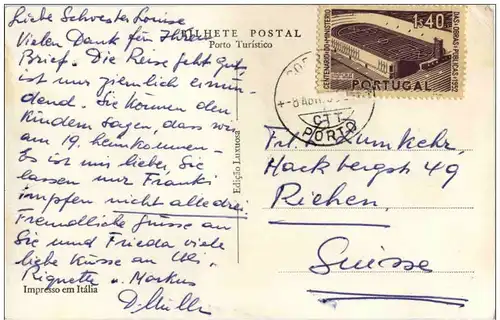 Liebe Schwester Louise
Vielen Dank für Ihren
Brief. Die Reise geht gut,
ist nur ziemlich ermü-
dend. Sie können den
Kindern sagen, dass wir
am 19. heimkommen.
Es ist mir lieber, Sie
lassen nur Franki
impfen nicht alle drei.
Freundliche Grüsse an
Sie und Frieda viele
liebe Küsse an Uli,
Riquette u. Markus
Impresso em Itália
BILHETE POSTAL
Porto Turístico
Edição Luxuosa
CENTENÁRIO DO MINISTÉRIO
DAS OBRAS PÚBLICAS 1952
1$40
PORTUGAL
CTT
PORTO
Frl. L. Umkehr,
Hackbergst 49
Riehen.
Suisse